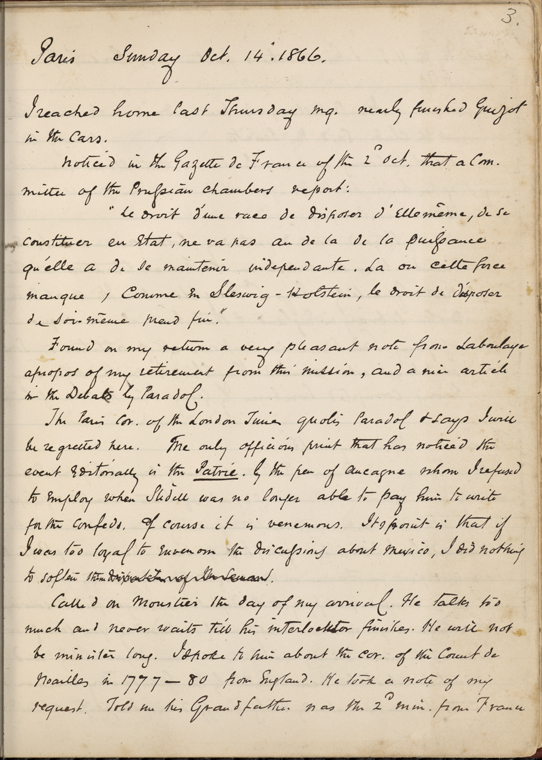 3.
Paris Sunday Oct. 14. 1866.
I reached home last Thursday mg. nearly finished Guizot
in the Cars.
Noticed in the Gazette de France of the 2d Oct. that a Com-
mittee of the Prussian chambers report:
"Le droit d'une race de disposer d'Elle même, de se
constituer en Etat, ne va pas au de la de la puissance
qu'elle a de se maintenir independante. La ou cette force
manque, Comme en Sleswig-Holstein, le droit de disposer
de Soi même prend fin."
Found on my return a very pleasant note from Laboulaye
apropos of my retirement from this mission, and a nice article
in the Debats by Paradol.
The Paris Cor. of the London Times quotes Paradol & says I will
be regretted here. The only officious print that has noticed the
event Editorially is the Patrie. by the pen of whom I refused
to Employ when Slidell was no longer able to pay him to write
for the Confeds. Of course it is venemous. Its point is that if
I was too loyal to Envenom the discussions about Mexico, I did nothing
to soften the disposition of Mr Seward.
Called on Moustier the day of my arrival. He talks too
much and never waits till his interlocutor finishes. He will not
be minister long. I spoke to him about the cor. of the Count de
Noailles in 1777-80 from England. He took a note of my
request. Told me his Grandfather was the 2d min. from France